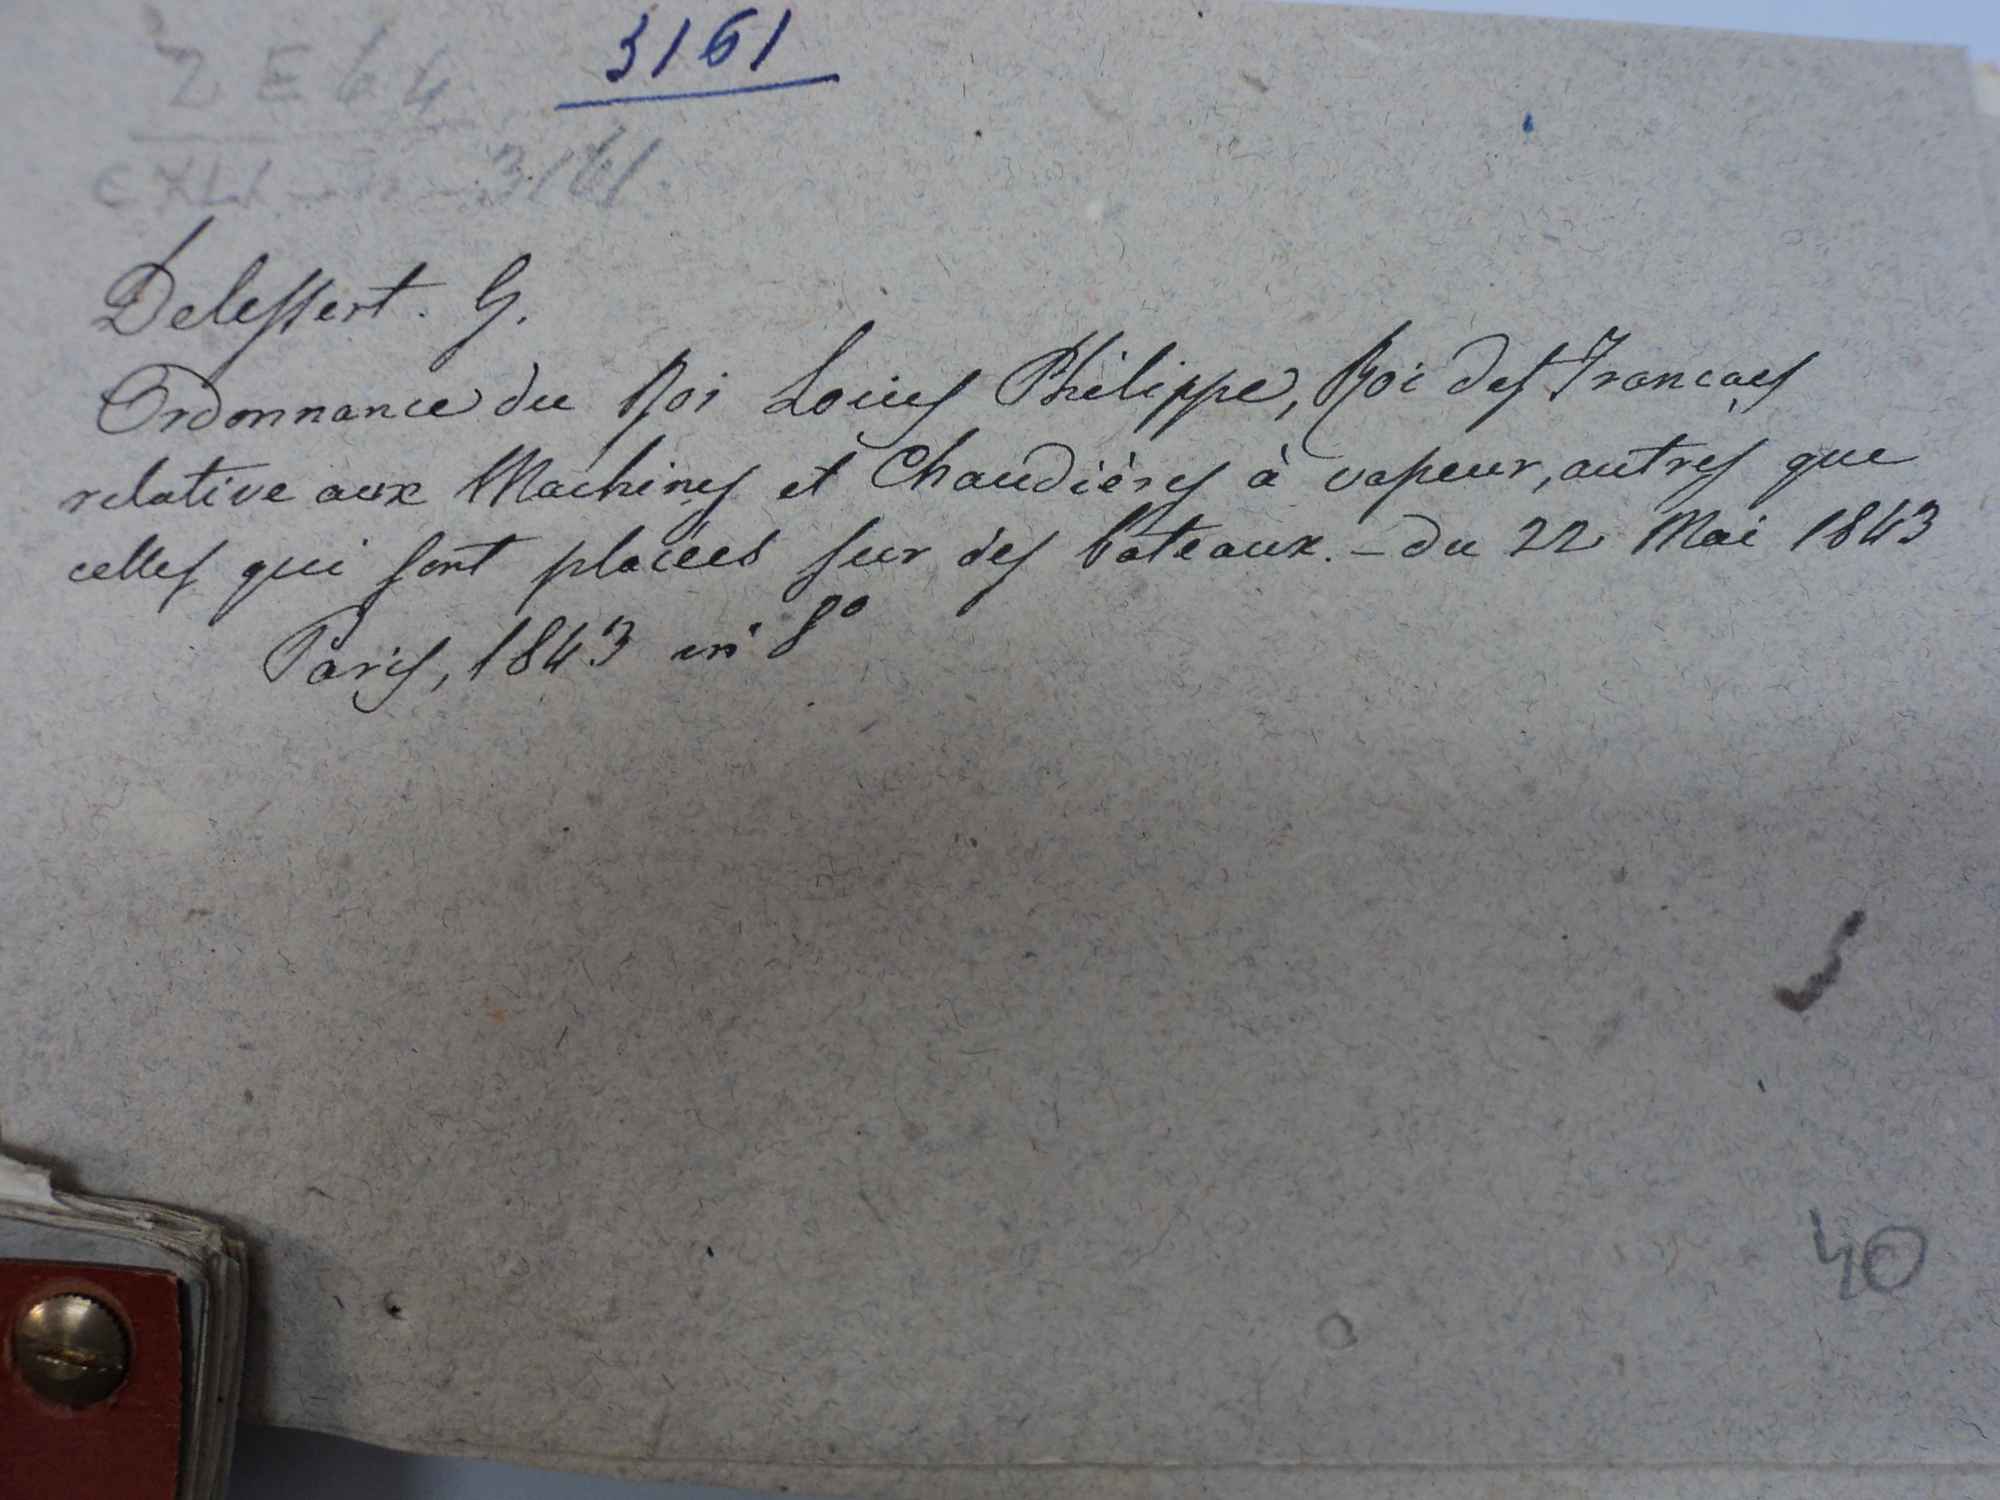 2 E 64
3161
3161
Delessert. G.
Ordonnance du Roi Louis Philippe, Roi des Francais
relative aux Machines et Chaudières à vapeur, autres que
celles qui sont placées sur des bateaux. - du 22 Mai 1843
Paris, 1843 in 8°
40